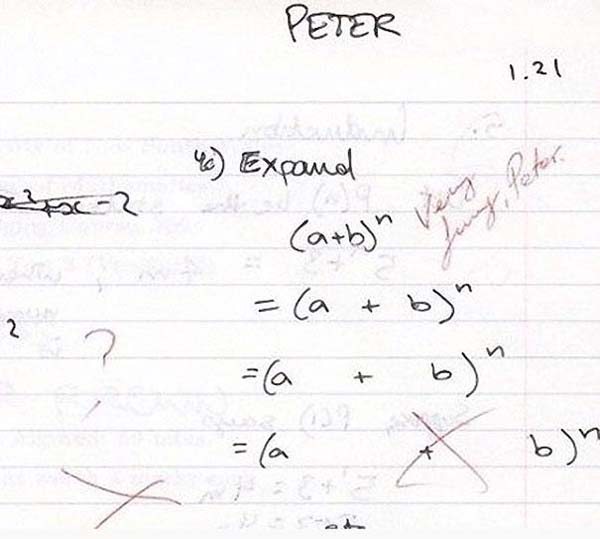 PETER
1.21
4c) Expand
(a+b)ⁿ
Very funny, Peter.
= (a + b)ⁿ
= (a + b)ⁿ
= (a + b)ⁿ
x² + x - 2
2
?